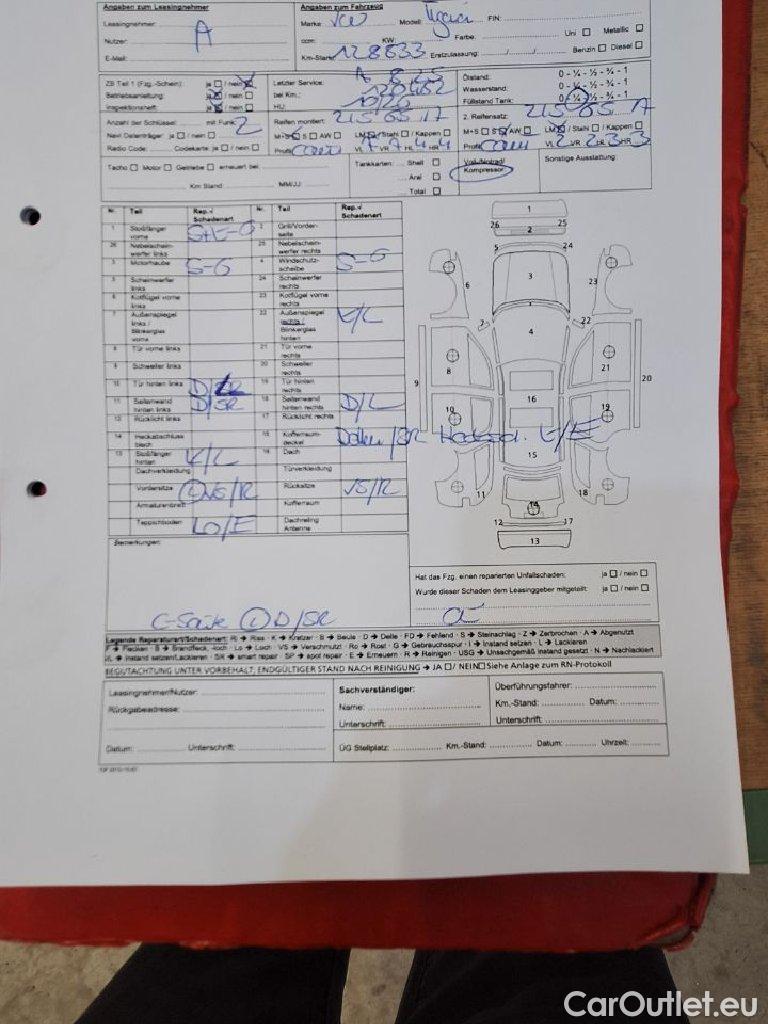 Angaben zum Leasingnehmer
Leasingnehmer:
Nutzer: A
E-Mail:
Angaben zum Fahrzeug
Marke VW Modell: Tiguan FIN:
ccm: KW: Farbe: Uni Metallic
Km-Stand: 128833 Erstzulassung: Benzin Diesel
ZB Teil 1 (Fzg.-Schein): ja / nein
Betriebsanleitung: ja / nein
Inspektionsheft: ja / nein
Letzter Service:
bei Km.:
HU: 10/26
Ölstand: 0 - ¼ - ½ - ¾ - 1
Wasserstand: 0 - ¼ - ½ - ¾ - 1
Füllstand Tank: 0 - ¼ - ½ - ¾ - 1
Anzahl der Schlüssel: mit Funk: 2
Navi Datenträger: ja / nein
Radio Code: Codekarte: ja / nein
Reifen montiert: 215 65 17
M+S S AW LM / Stahl / Kappen
2. Reifensatz: 215 65 17
M+S S AW LM / Stahl / Kappen
Tacho Motor Getriebe erneuert bei
Km Stand MM/JJ:
Tankkarten: Shell
Aral
Total
Kompressor
Sonstige Ausstattung:
Nr. Teil Rep.-/ Schadenart Nr. Teil Rep.-/ Schadenart
1 Stoßfänger vorne 2 Grill/Vorderseite
26 Nebelscheinwerfer links 25 Nebelscheinwerfer rechts
3 Motorhaube S-G 4 Windschutzscheibe S-G
5 Scheinwerfer links 24 Scheinwerfer rechts
6 Kotflügel vorne links 23 Kotflügel vorne rechts
7 Außenspiegel links / Blinkerglas hinten 22 Außenspiegel rechts / Blinkerglas hinten K/L
8 Tür vorne links 21 Tür vorne rechts
9 Schweller links 20 Schweller rechts
10 Tür hinten links 19 Tür hinten rechts
11 Seitenwand hinten links D/SR 18 Seitenwand hinten rechts D/L
12 Rücklicht links 17 Rücklicht rechts
14 Heckabschlussblech 15 Kofferraumdeckel Dellen/SR
13 Stoßfänger hinten K/L 16 Dach
Dachverkleidung Türverkleidung
Vordersitze VS/R Rücksitze VS/R
Armaturenbrett Kofferraum
Teppichboden LO/E Dachreling Antenne
Bemerkungen:
C-Säule L D/SR
1
26 25
2
5 24
3
6 23
7 22
4
8 21
9 20
16
10 19
15
11 18
14
12 17
13
Hat das Fzg. einen reparierten Unfallschaden: ja / nein
Wurde dieser Schaden dem Leasinggeber mitgeteilt: ja / nein
Legende Reparaturart/Schadenart: RI → Riss - K → Kratzer - B → Beule - D → Delle - FD → Fehlend - S → Steinschlag - Z → Zerbrochen - A → Abgenutzt
F → Flecken - B → Brandfleck, -loch - Lo → Loch - VS → Verschmutzt - Ro → Rost - G → Gebrauchsspur - I → Instand setzen - L → Lackieren
IL → Instand setzen/Lackieren - SR → smart repair - SP → spot repair - E → Erneuern - R → Reinigen - USG → Unsachgemäß instand gesetzt - N → Nachlackiert
BEGUTACHTUNG UNTER VORBEHALT, ENDGÜLTIGER STAND NACH REINIGUNG → JA / NEIN Siehe Anlage zum RN-Protokoll
Leasingnehmer/Nutzer:
Rückgabeadresse:
Datum: Unterschrift:
Sachverständiger:
Name:
Unterschrift:
Überführungsfahrer:
Km.-Stand: Datum:
Unterschrift:
ÜG Stellplatz: Km.-Stand: Datum: Uhrzeit:
CarOutlet.eu